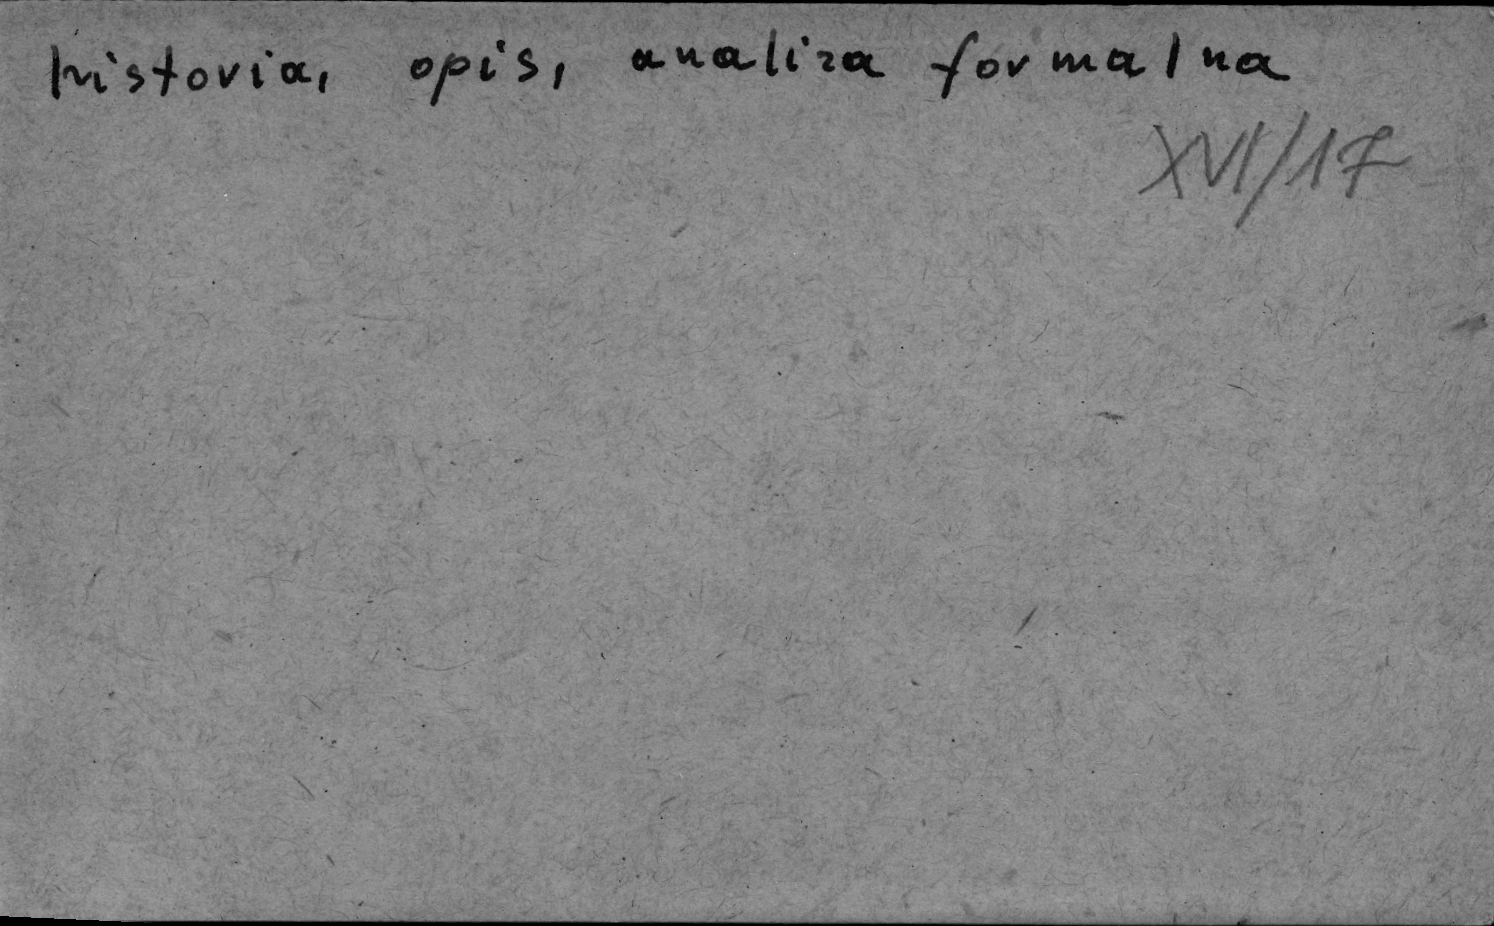 historia, opis, analiza formalna
XVI/17